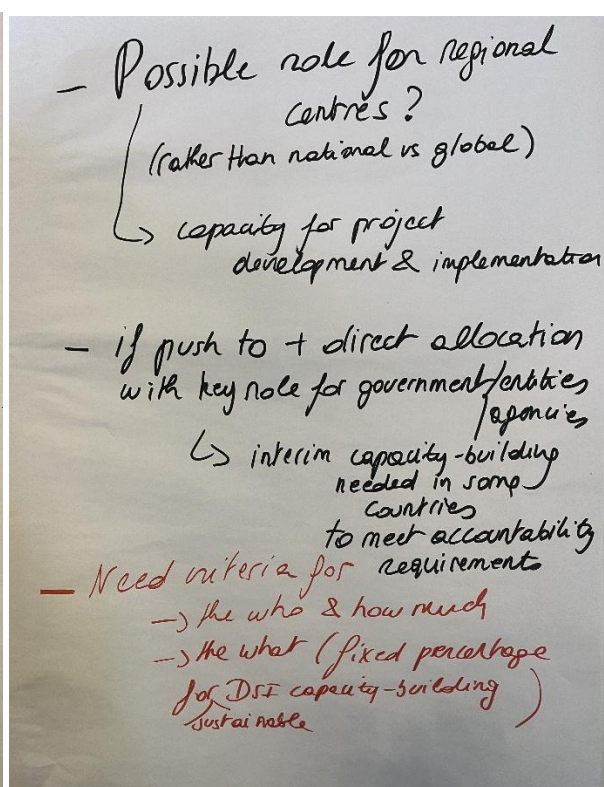 - Possible role for regional
centres?
(rather than national vs global)
↳ capacity for project
development & implementation
- if push to + direct allocation
with key role for government/entities
/agencies
↳ interim capacity-building
needed in some
countries
to meet accountability
requirements
- Need criteria for
→ the who & how much
→ the what (fixed percentage
for DSI capacity-building)
sustainable